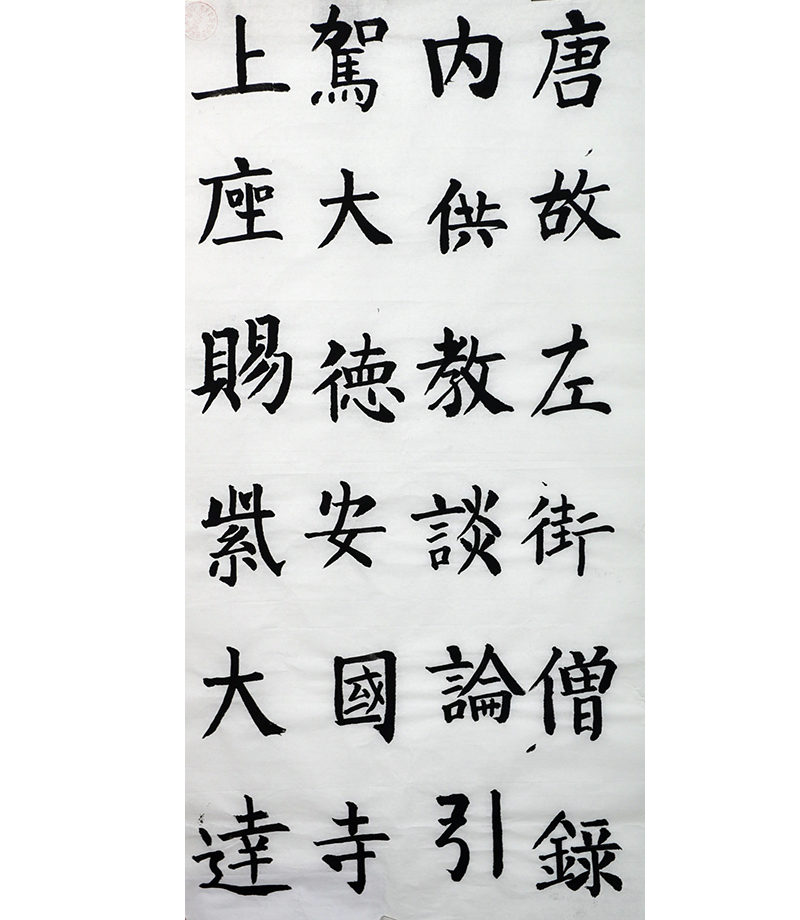 唐故左街僧錄
內供教談論引
駕大德安國寺
上座賜紫大達